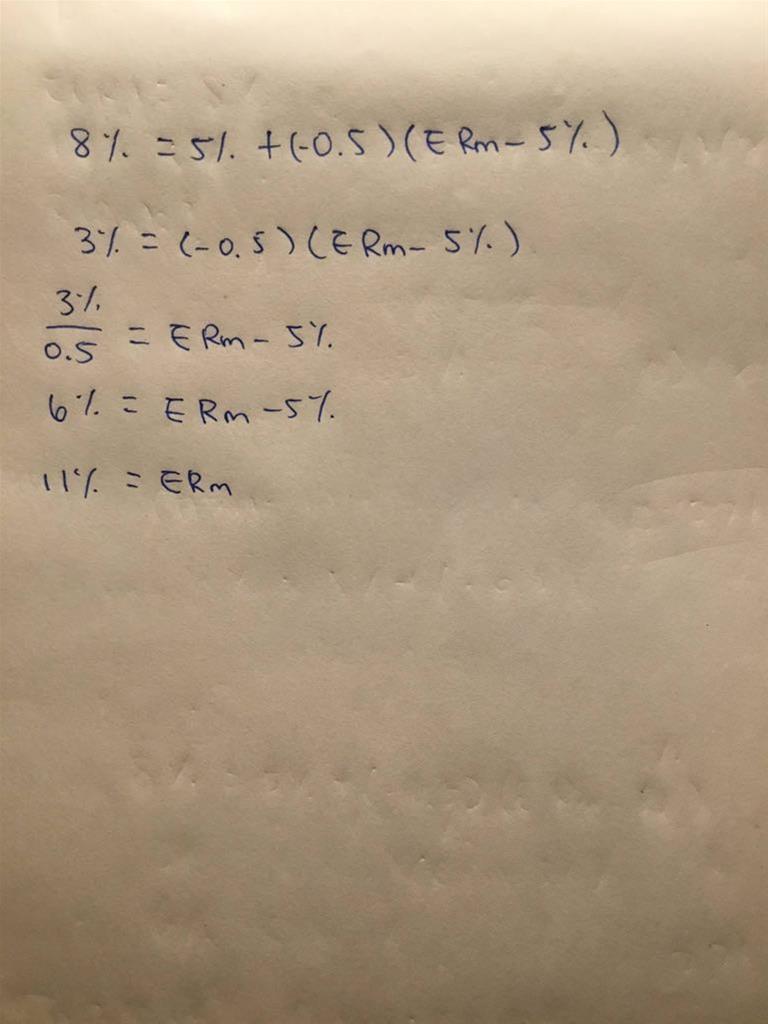 8% = 5% + (-0.5)(ERm - 5%)
3% = (-0.5)(ERm - 5%)
3%
0.5 = ERm - 5%
6% = ERm - 5%
11% = ERm